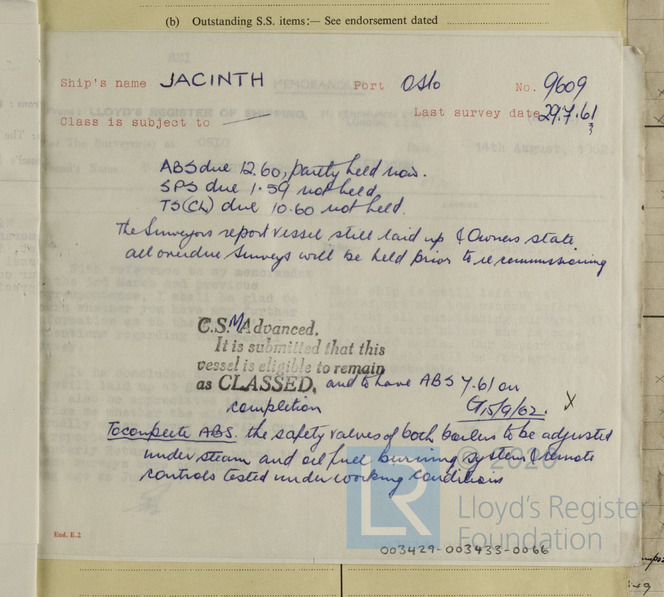 (b) Outstanding S.S. items:— See endorsement dated
Ship's name JACINTH Port Oslo No. 9609
Class is subject to — Last survey date 29.7.61
ABS due 12.60, partly held now.
SPS due 1.59 not held.
TS(CL) due 10.60 not held.
The Surveyors report vessel still laid up & Owners state
all overdue Surveys will be held prior to recommissioning
C.S.M Advanced.
It is submitted that this
vessel is eligible to remain
as CLASSED, and to have ABS 7.61 on
completion
15/9/62. X
To complete ABS. the safety valves of both boilers to be adjusted
under steam and oil fuel burning system & remote
controls tested under working conditions
© 2020
Lloyd's Register
Foundation
End. E.2
003429-003433-0066